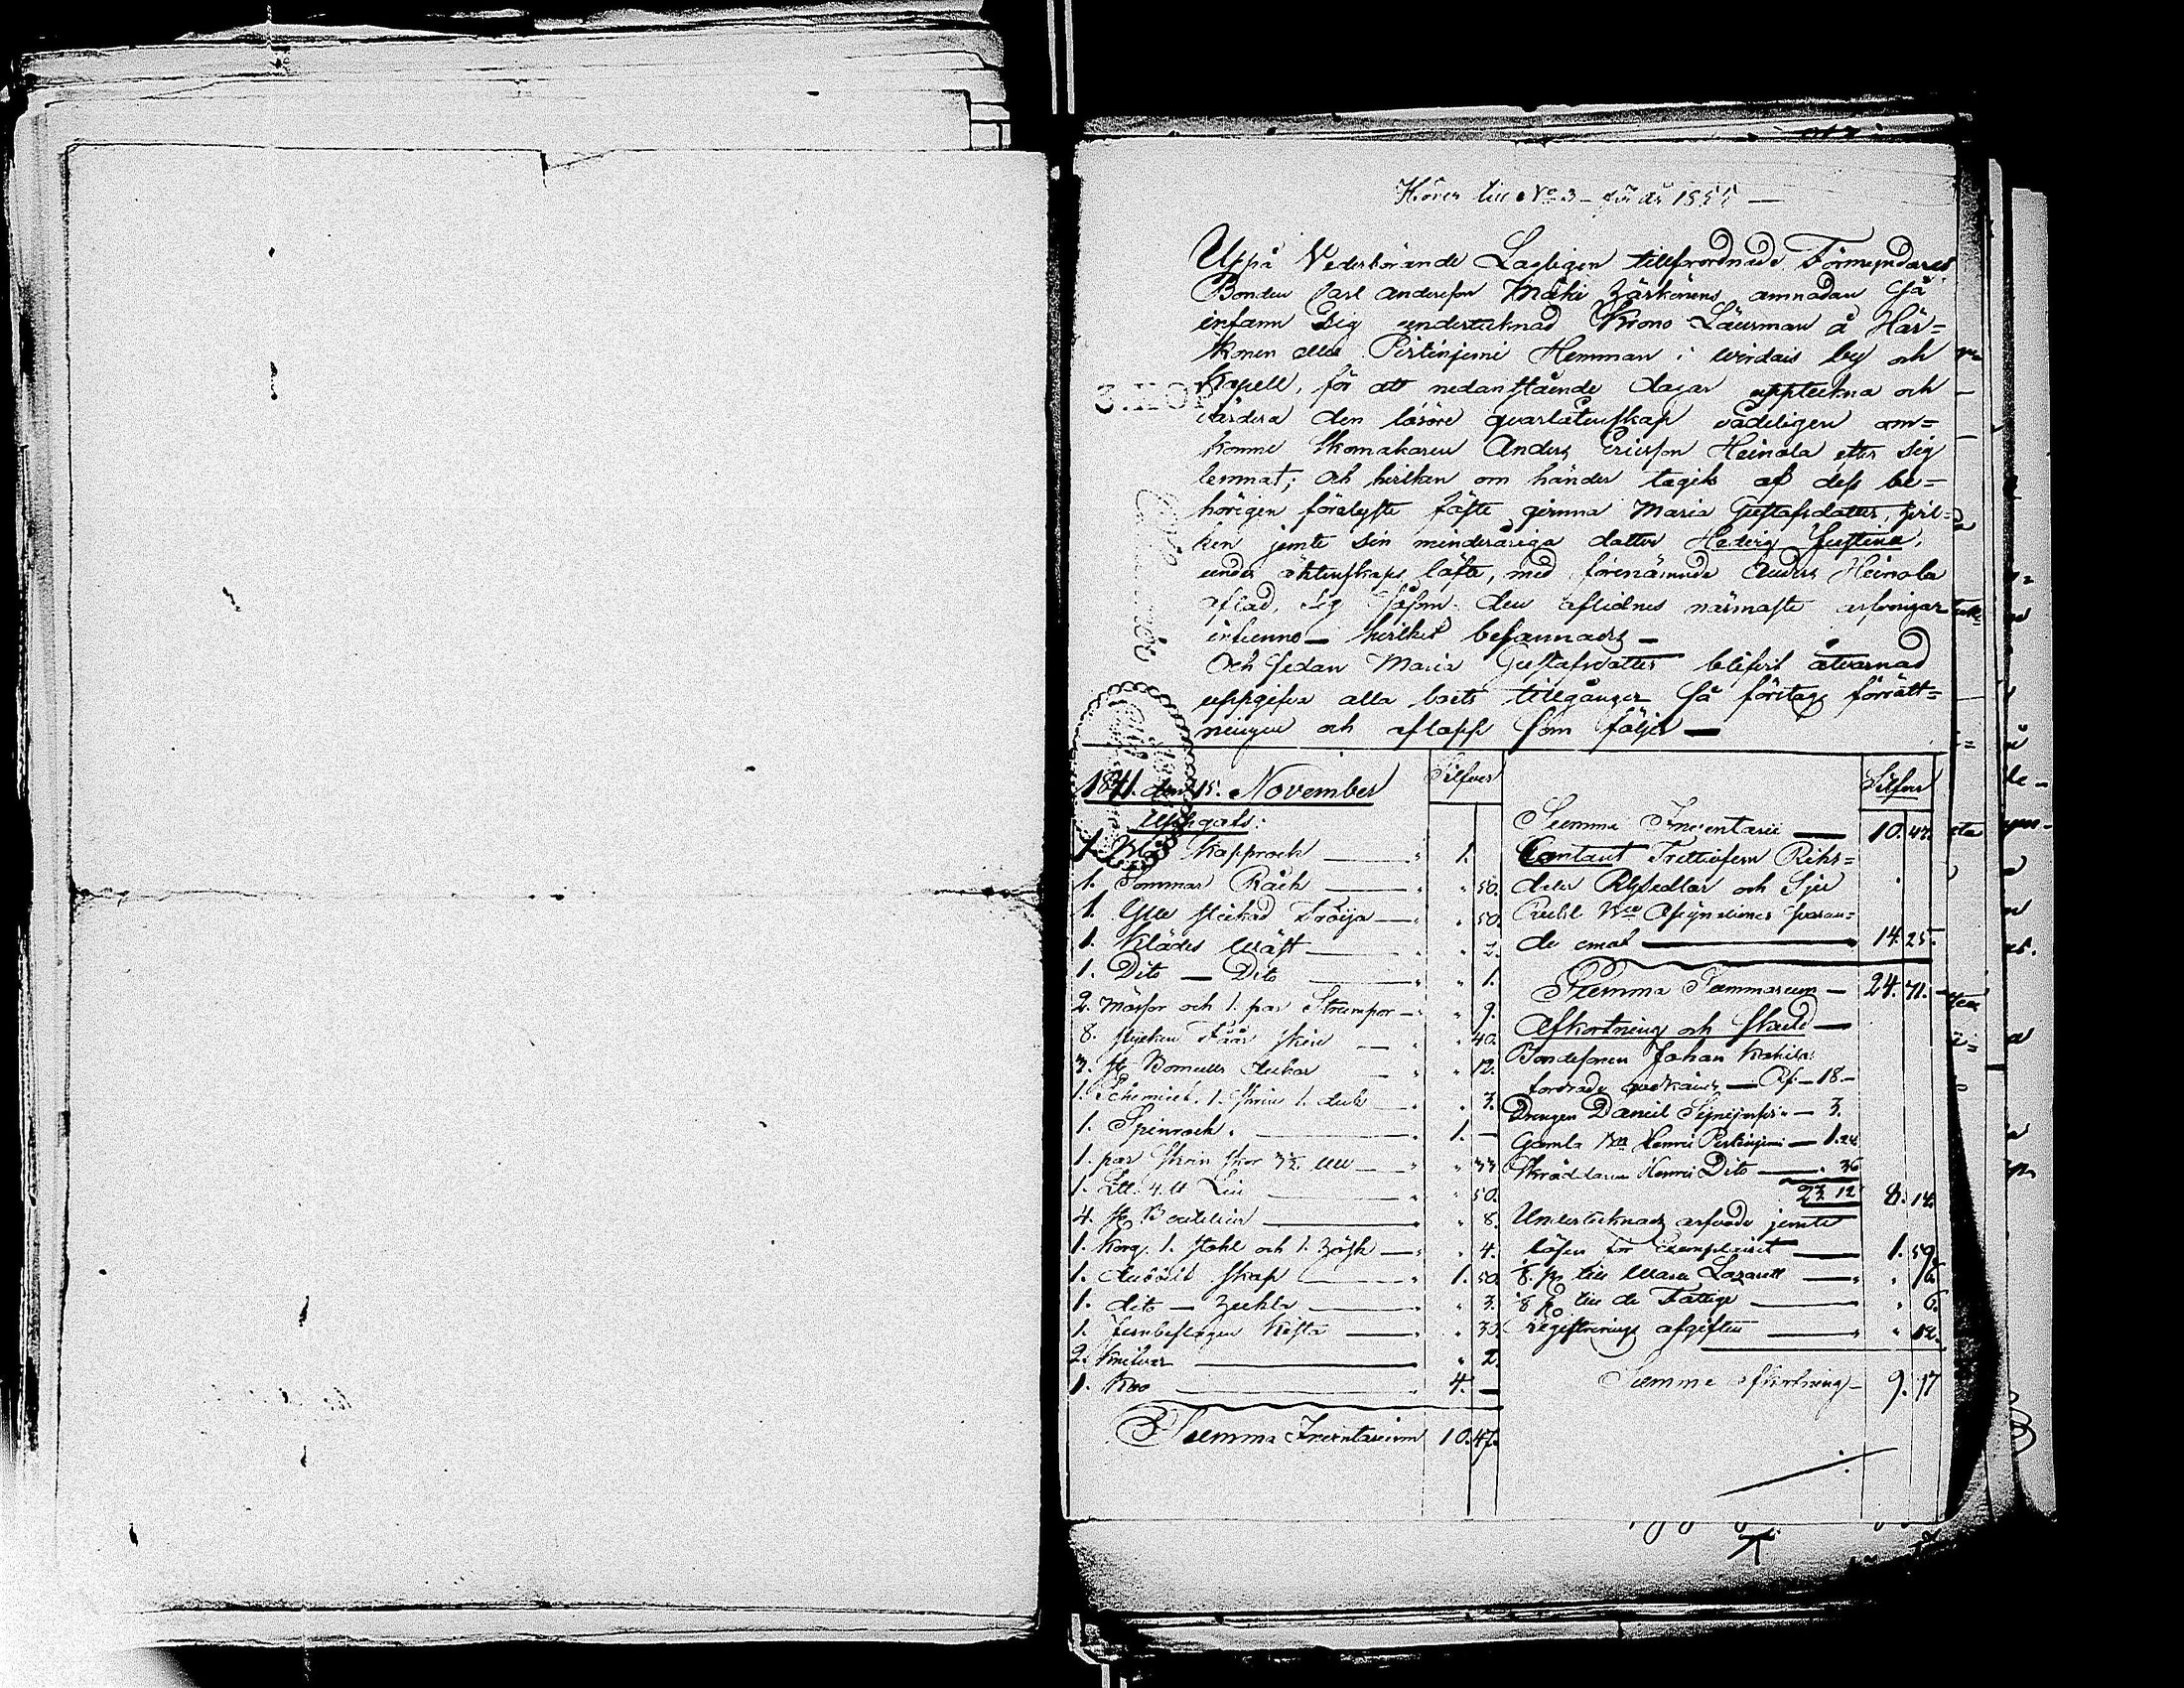 Hörer till No 3 för år 1854
Uppå Vederbörande Lagligen tillförordnade Förmyndares
Bonden Carl Andersson Mäki Härkönens anmodan
infann sig undertecknad Krono Länsman å Här=
könen eller Pirtinjemi Hemman i Virdois by och
Kapell, för att nedanstående dagar uppteckna och
värdera den lösöre qvarlåtenskap vådeligen om=
komne Skomakaren Anders Ericsson Heinola efter sig
lemnat; och hvilken om händer tagits af dess be=
hörigen förelyste fäste qvinna Maria Gustafsdotter, hvil=
ken jemte sin minderåriga dotter Hedvig Justina,
under äktenskaps löfte, med förenämnde Anders Heinola
aflad, sig såsom den aflidnes närmaste arfvingar
infunno — hvilket befannads —
Och sedan Maria Gustafsdotter blifvit åtvarnad
uppgifva alla boets tillgångar så företags förrätt=
ningen och aflopp som följer —
3.KOP
1841. den 15. November Silfver
Uppgafs:
1. Blå Kapprock — 1.
1. Sommar Råck — 50.
1. Ylle stickad Tröija — 50.
1. Klädes Wäst — 2.
1. Dito — Dito — 1.
2. Mössor och 1. par Strumpor — 9.
8. stycken Fåår skin — 40.
3. st Bomulls dukar — 12.
1. Chemiset. 1. skrin 1. duk — 3.
1. Spinrock. — 1. —
1. par skin skor 3½ — 33
1. 4. ℔ Lin — 50.
4. st Boutellier — 8.
1. Korg. 1. stohl och 1. — 4.
1. skåp — 1. 50
1. dito — — 3.
1. Jernbeslagen Kista — 30
2. Knifvar — 2.
1. Koo — 4. —
Summa Inventarium 10. 47.
Silfver
Summa Inventarii — 10. 47.
Contant Trettiofem Riks=
daler Rgsedlar och Sju
Rubel Bco Assignationer svaran=
de emot — 14. 25.
Summa Summarum — 24. 71.
Afkortning och skuld —
Bondesonen Johan
fordrade — 18. —
Drengen Daniel — 3.
Gamla Henric Pirtinjemi — 1. 24
Skräddaren Henric Dito — 36
23. 12 8. 14
Undertecknads arfvode jemte
lösen för Exemplaret — 1. 59
till Wasa Lazarett — 6.
till de Fattige — 6.
registrerings afgiften — 12.
Summa afkortning — 9. 17